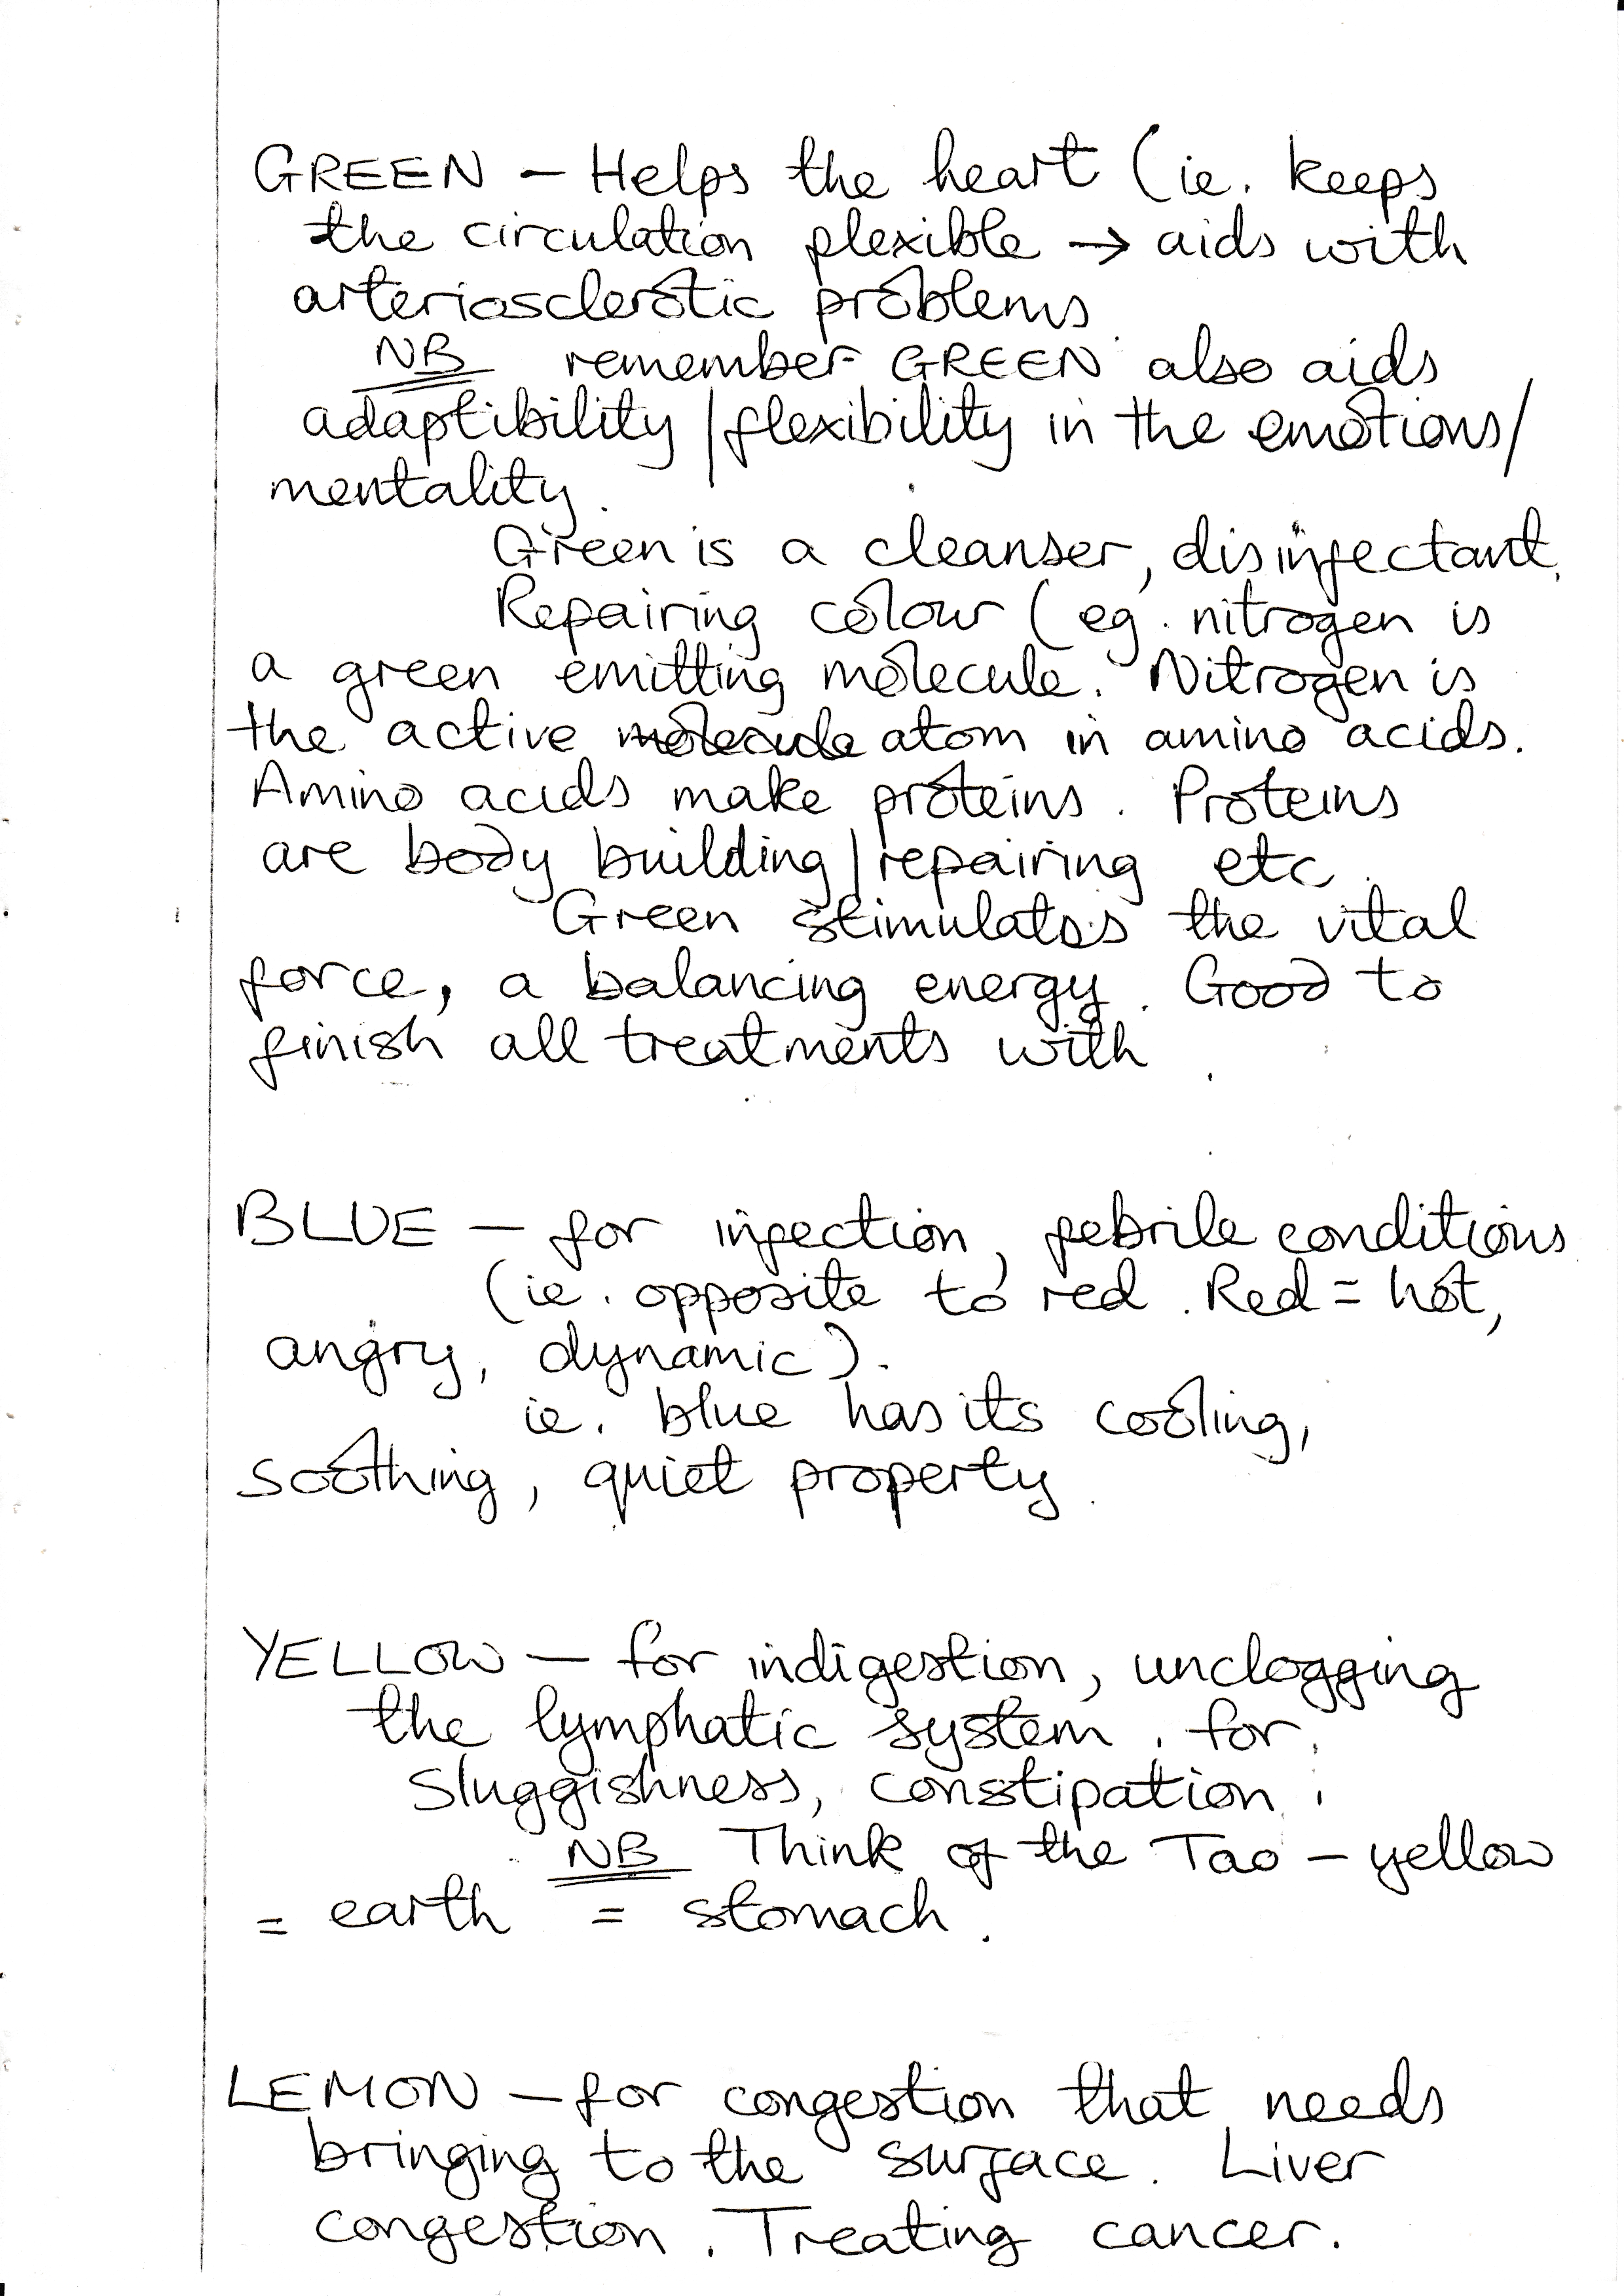 GREEN – Helps the heart (ie. keeps
the circulation flexible → aids with
arteriosclerotic problems
NB remember GREEN also aids
adaptibility / flexibility in the emotions /
mentality.
Green is a cleanser, disinfectant.
Repairing colour (eg. nitrogen is
a green emitting molecule. Nitrogen is
the active molecule atom in amino acids.
Amino acids make proteins. Proteins
are body building / repairing etc.
Green stimulates the vital
force, a balancing energy. Good to
finish all treatments with.
BLUE – for infection, febrile conditions
(ie. opposite to red. Red = hot,
angry, dynamic).
ie. blue has its cooling,
soothing, quiet property.
YELLOW – for indigestion, unclogging
the lymphatic system. for
Sluggishness, constipation.
NB Think of the Tao – yellow
= earth = stomach.
LEMON – for congestion that needs
bringing to the surface. Liver
congestion. Treating cancer.